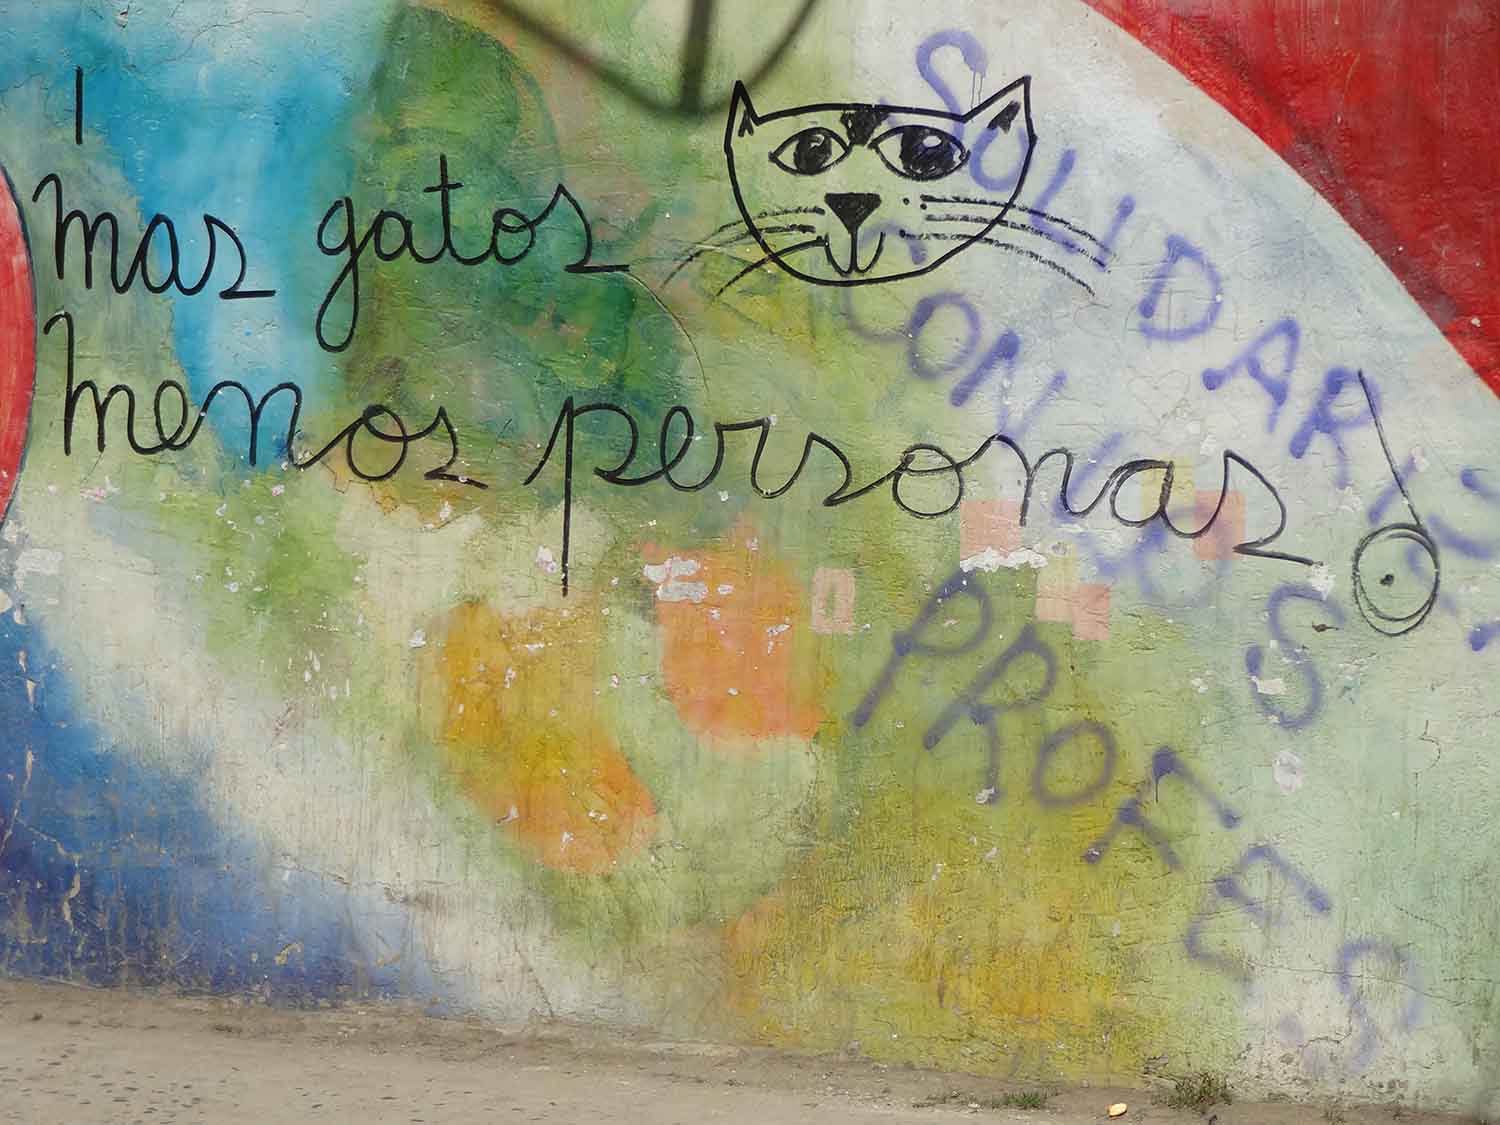 ¡mas gatos
menos personas!
SOLIDARI
CON LOS
PROFES